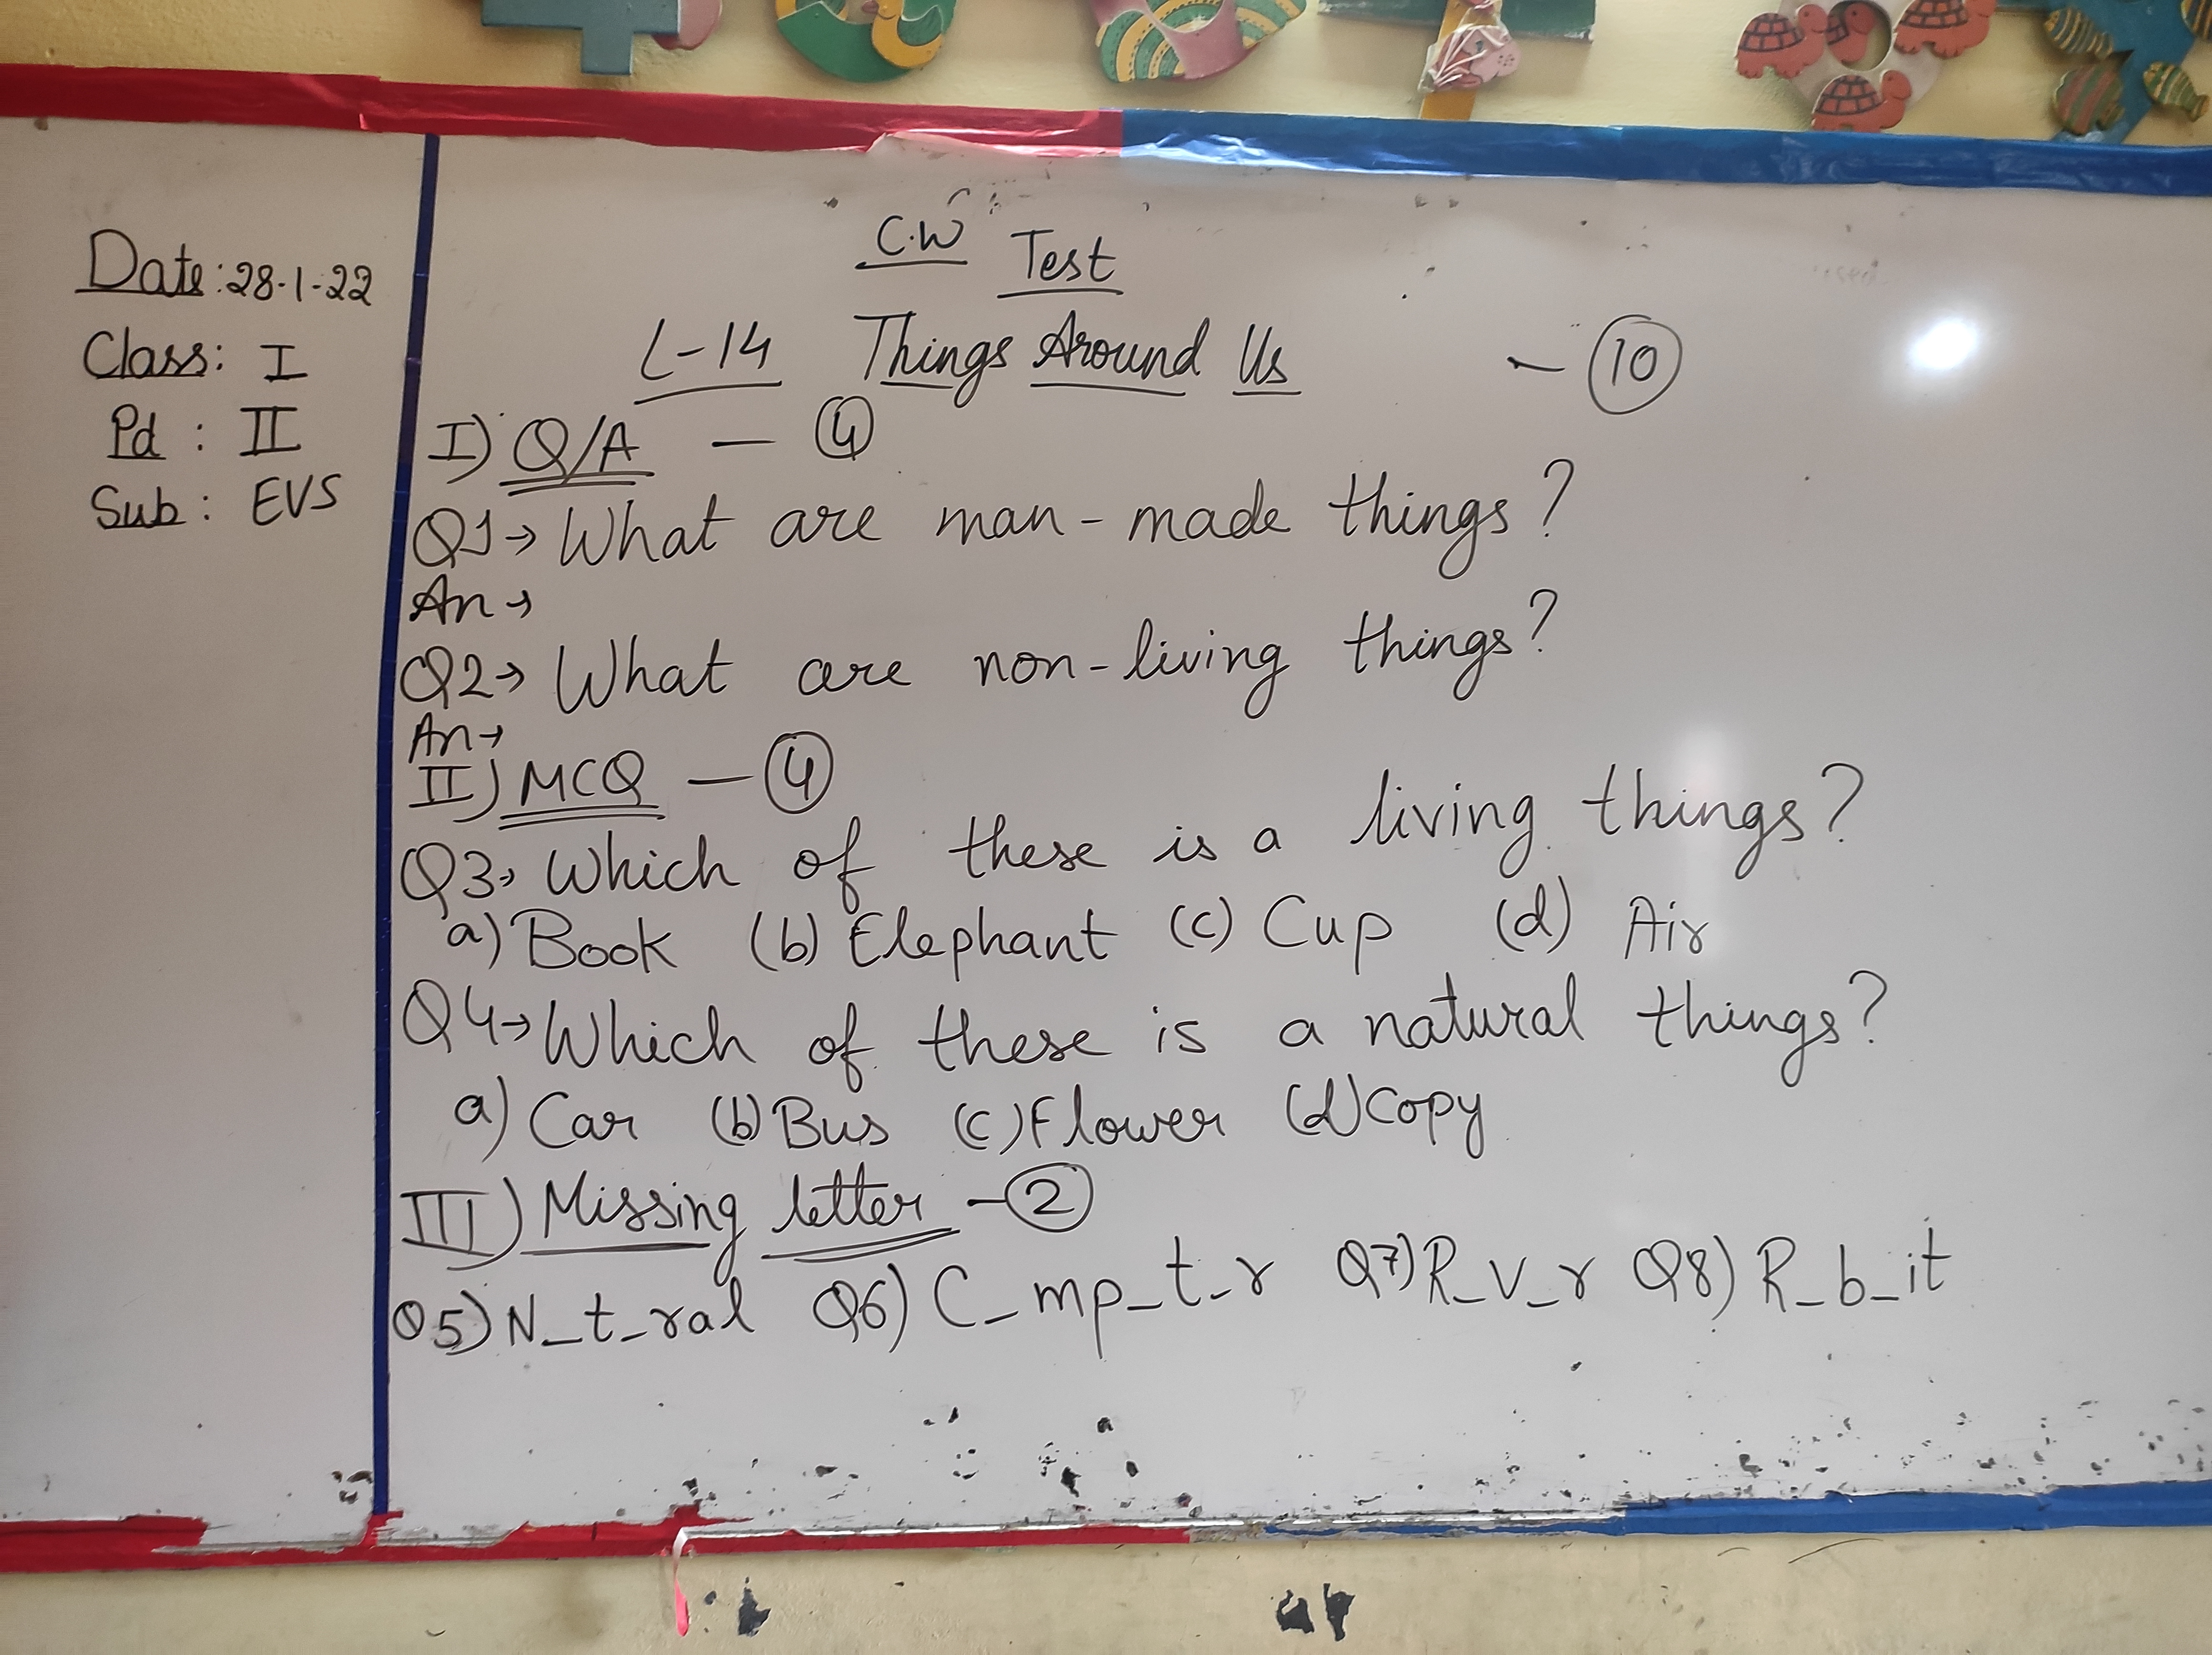 Date: 28-1-22
Class: I
Pd : II
Sub: EVS
C.W Test
L-14 Things Around Us - 10
I) Q/A - 4
Q1→ What are man-made things?
An→
Q2→ What are non-living things?
An→
II) MCQ - 4
Q3→ Which of these is a living things?
a) Book (b) Elephant (c) Cup (d) Air
Q4→ Which of these is a natural things?
a) Car (b) Bus (c) Flower (d) Copy
III) Missing letter - 2
Q5) N_t_ral Q6) C_mp_t_r Q7) R_v_r Q8) R_b_it